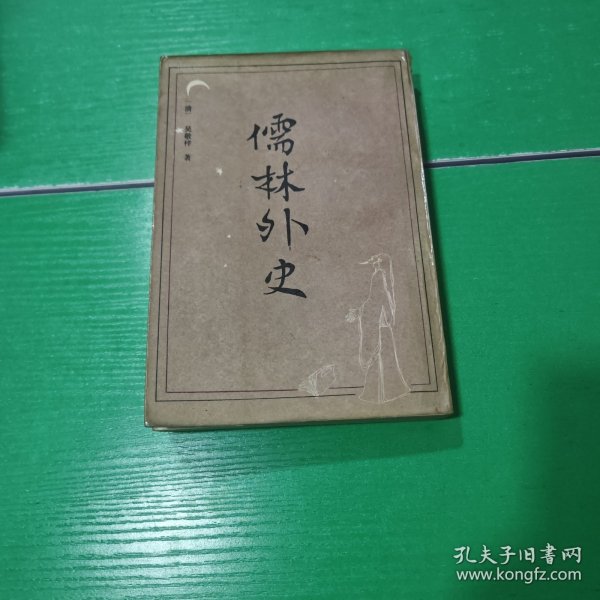 〔清〕吴敬梓 著
儒林外史
孔夫子旧书网
www.kongfz.com